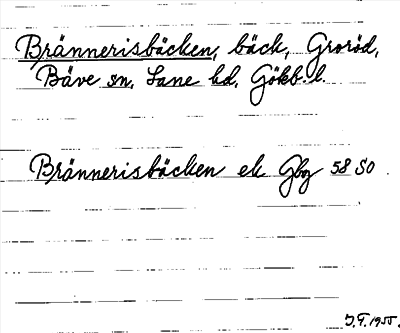 Brännerisbäcken, bäck, Groröd,
Bäve sn, Lane hd, Gökb. l.
Brännerisbäcken ek Gbg 58 SO
J.F. 1955.